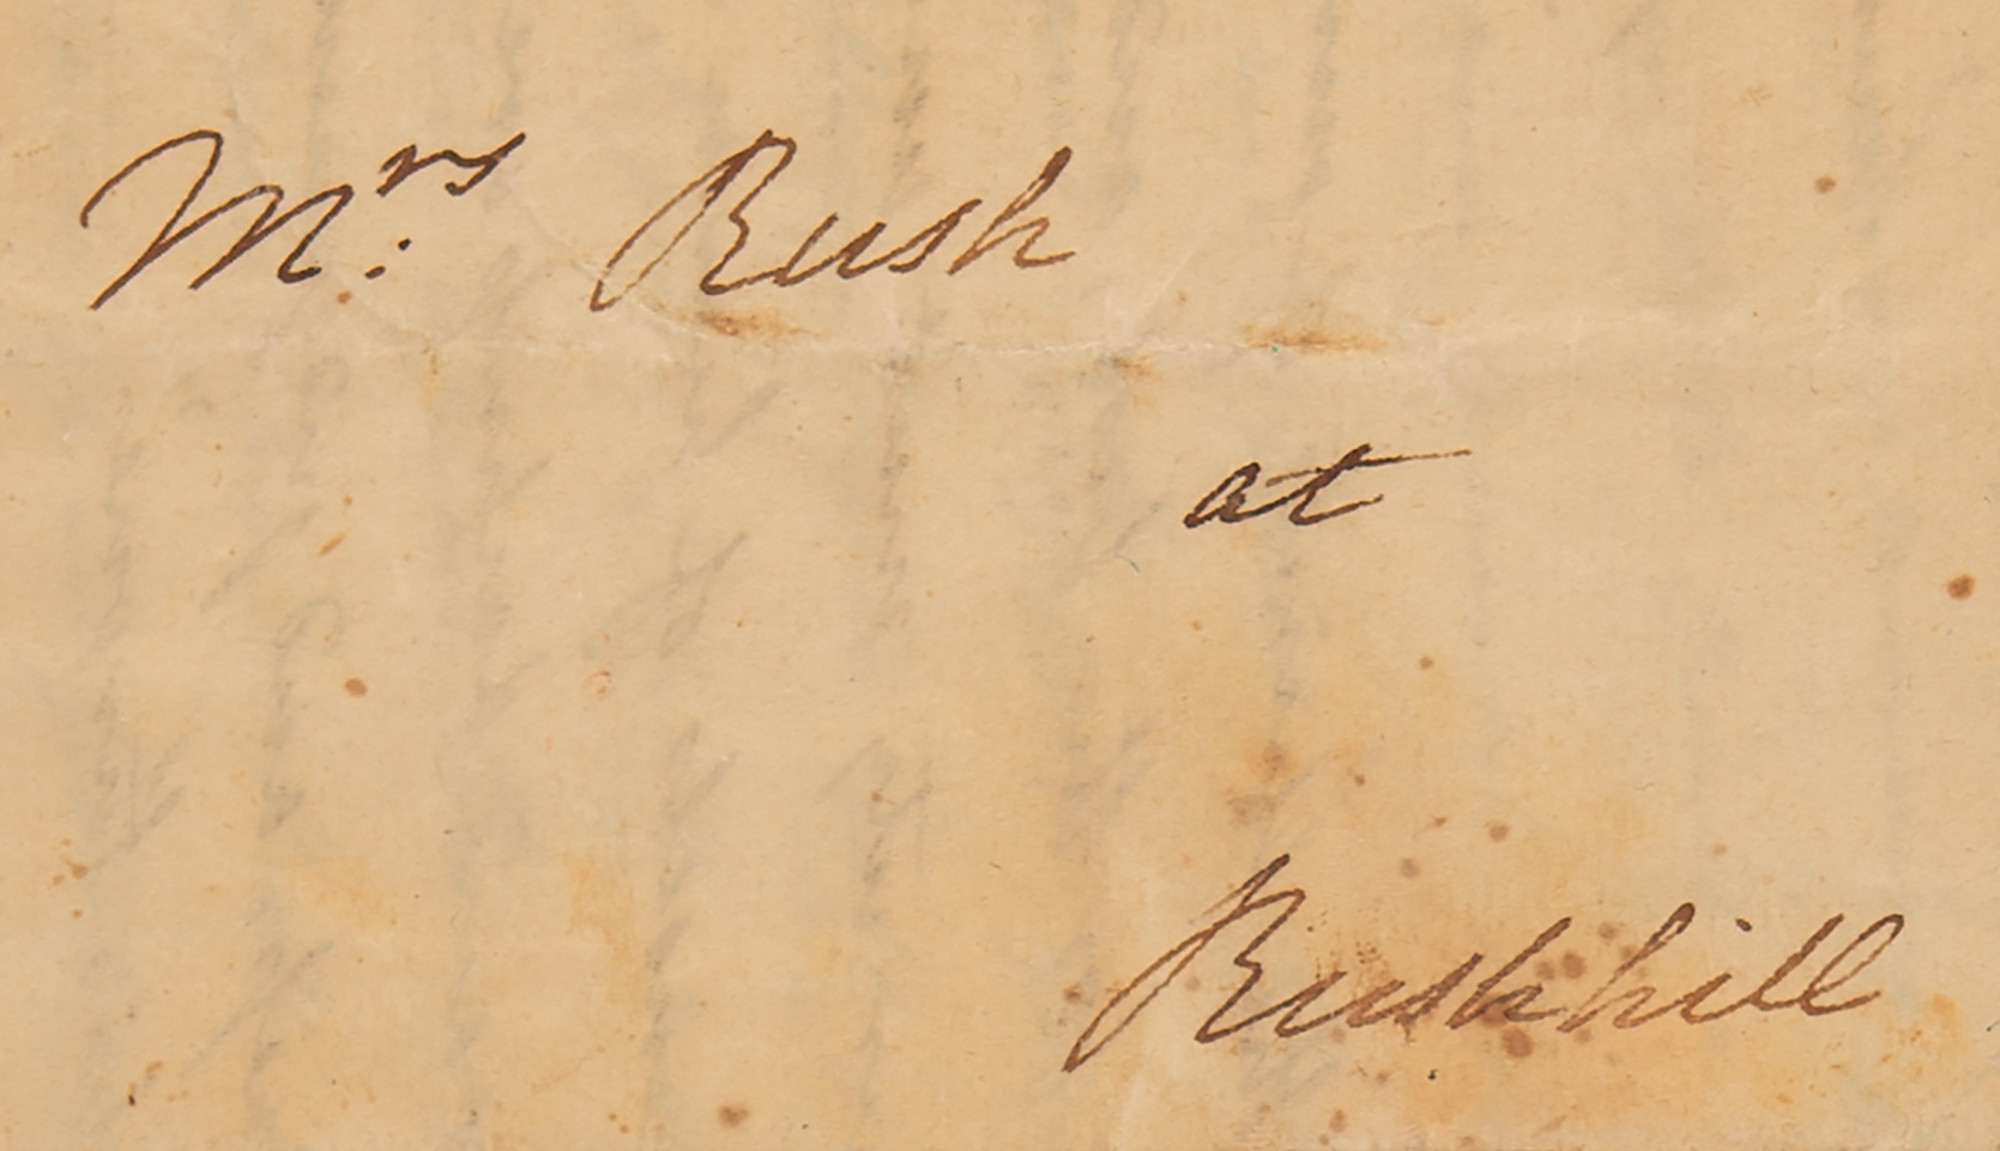 M.rs Rush
at
Rushhill